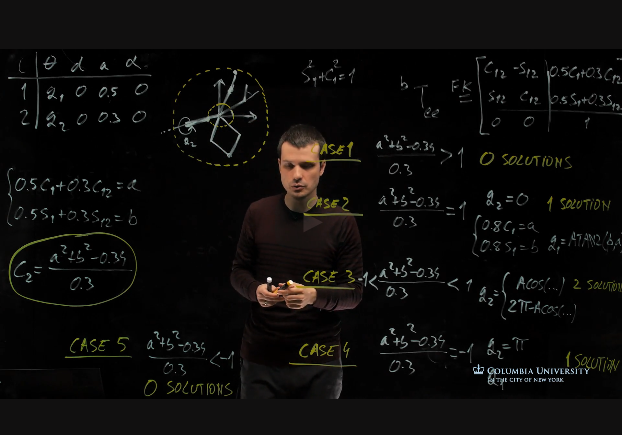 i θ d a α
1 q₁ 0 0.5 0
2 q₂ 0 0.3 0
q₂
S₁²+C₁²=1
b T ee
FK
C₁₂ -S₁₂ 0.5C₁+0.3C₁₂
S₁₂ C₁₂ 0.5S₁+0.3S₁₂
0 0 1
0.5C₁+0.3C₁₂=a
0.5S₁+0.3S₁₂=b
C₂=(a²+b²-0.34)/0.3
CASE 1 (a²+b²-0.34)/0.3 >1 0 SOLUTIONS
CASE 2 (a²+b²-0.34)/0.3 =1 q₂=0 1 SOLUTION
0.8C₁=a
0.8S₁=b q₁=ATAN2(b,a
CASE 3 -1<(a²+b²-0.34)/0.3 <1 q₂= ACOS(...) 2 SOLUTION
2π-ACOS(...)
CASE 4 (a²+b²-0.34)/0.3 =-1 q₂=π 1 SOLUTION
CASE 5 (a²+b²-0.34)/0.3 <-1
0 SOLUTIONS
COLUMBIA UNIVERSITY
IN THE CITY OF NEW YORK